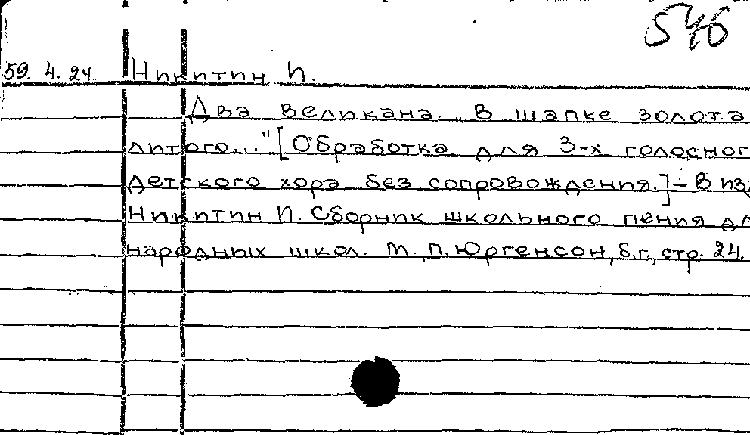 546
59. 4. 24 Никитин И.
Два великана. В шапке золота
литого..." [Обработка для 3-х голосног
детского хора без сопровождения.] - В из
Никитин И. Сборник школьного пения дл
народных школ. М., П. Юргенсон, б.г., стр. 24.